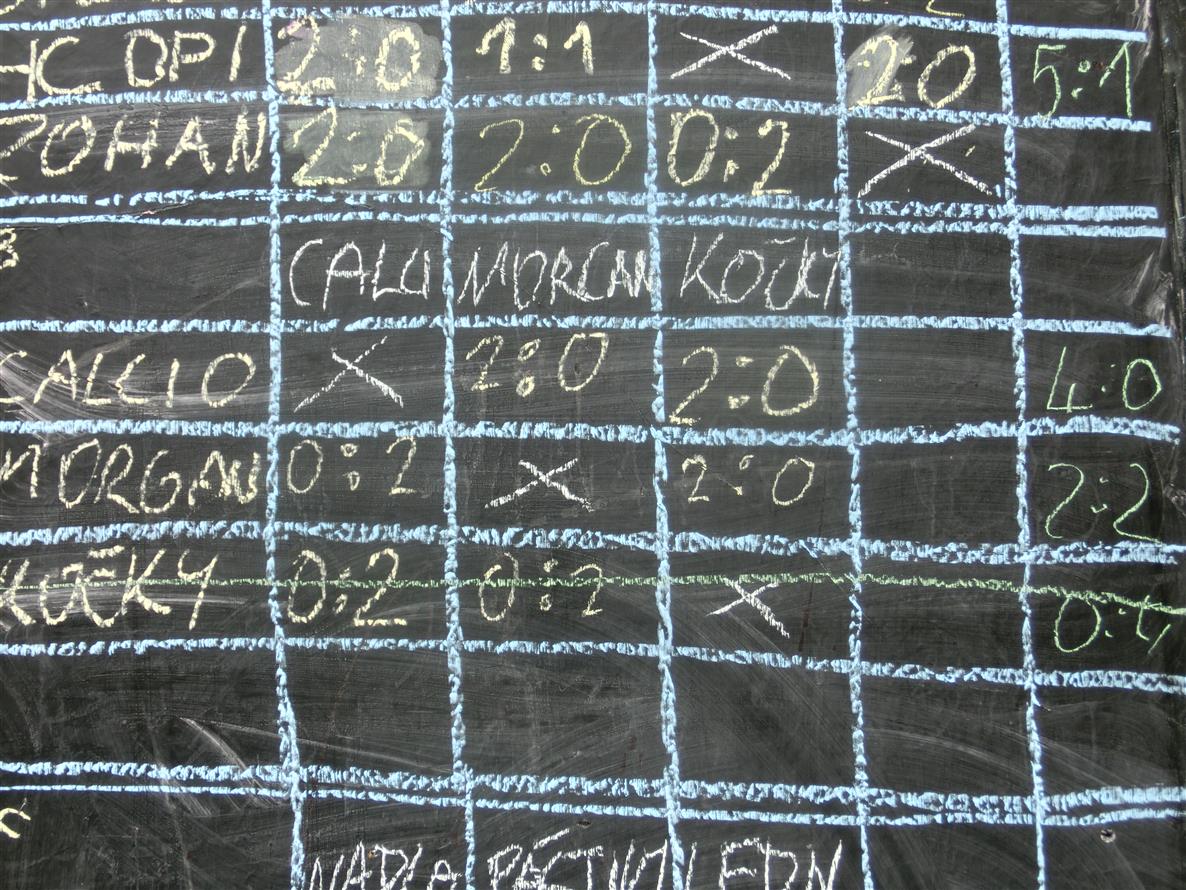 HC OPI 2:0 1:1 X 2:0 5:1
ZOHAN 2:0 2:0 0:2 X
B CALU MORCAN
CALCIO X 2:0 2:0 4:0
MORGAN 0:2 X 2:0 2:2
KOČKY 0:2 0:2 X 0:4
C